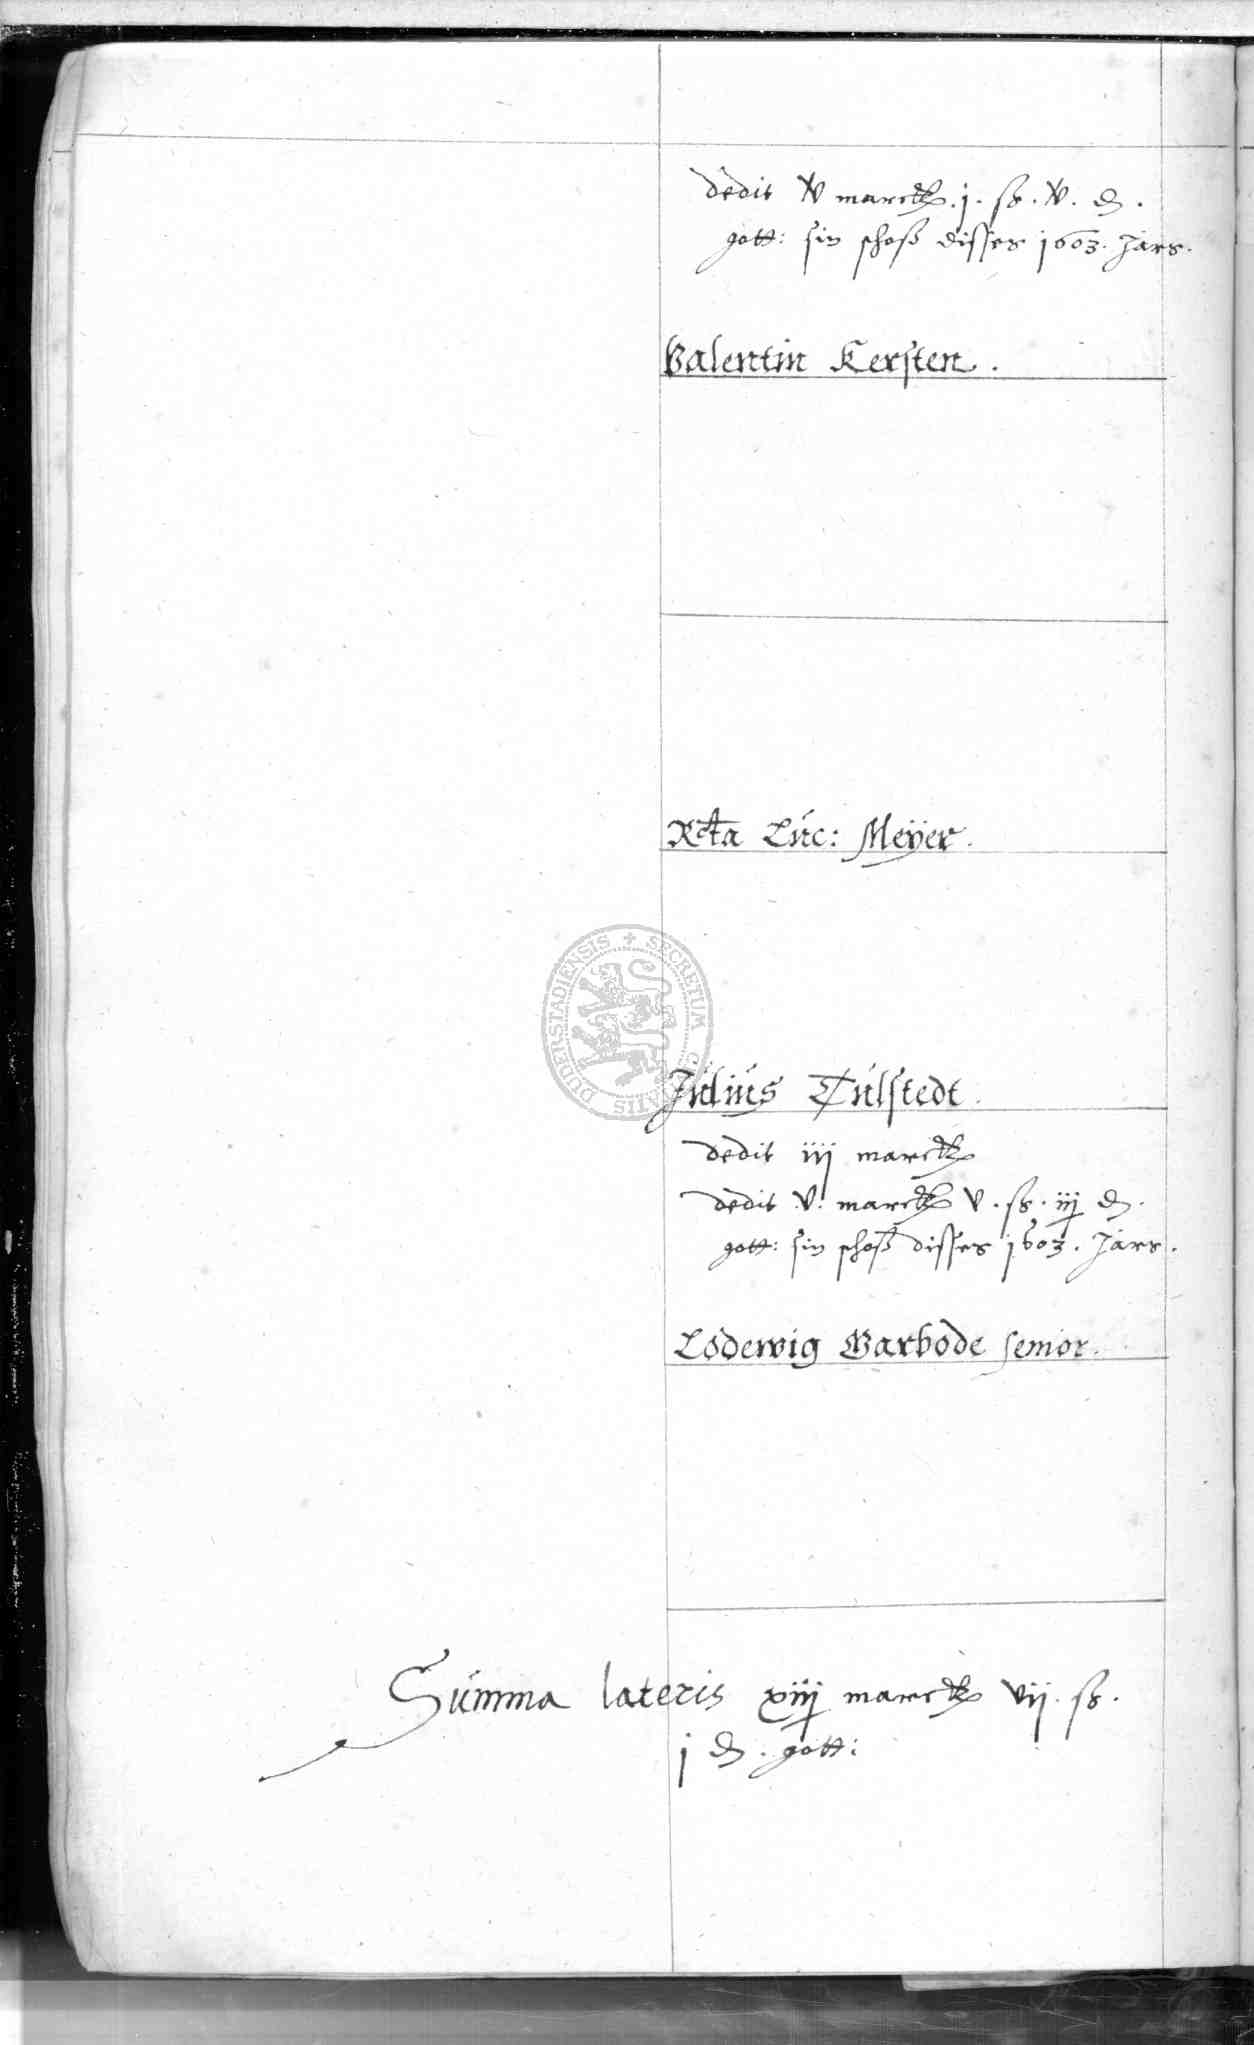 dedit v marck. j. ß. v. d.
gott: sin schoß disses 1603. Jars.
Valentin Kersten.
Rcta Luc: Meÿer.
SECRETUM CIVITATIS DUDERSTADIENSIS
Julius Tulstedt.
dedit iij marck
dedit v. marck v. ß. iij d.
gott: sin schoß disses 1603. Jars.
Lodewig Barbode senior.
Summa lateris xiij marck vij. ß.
j d. gott: